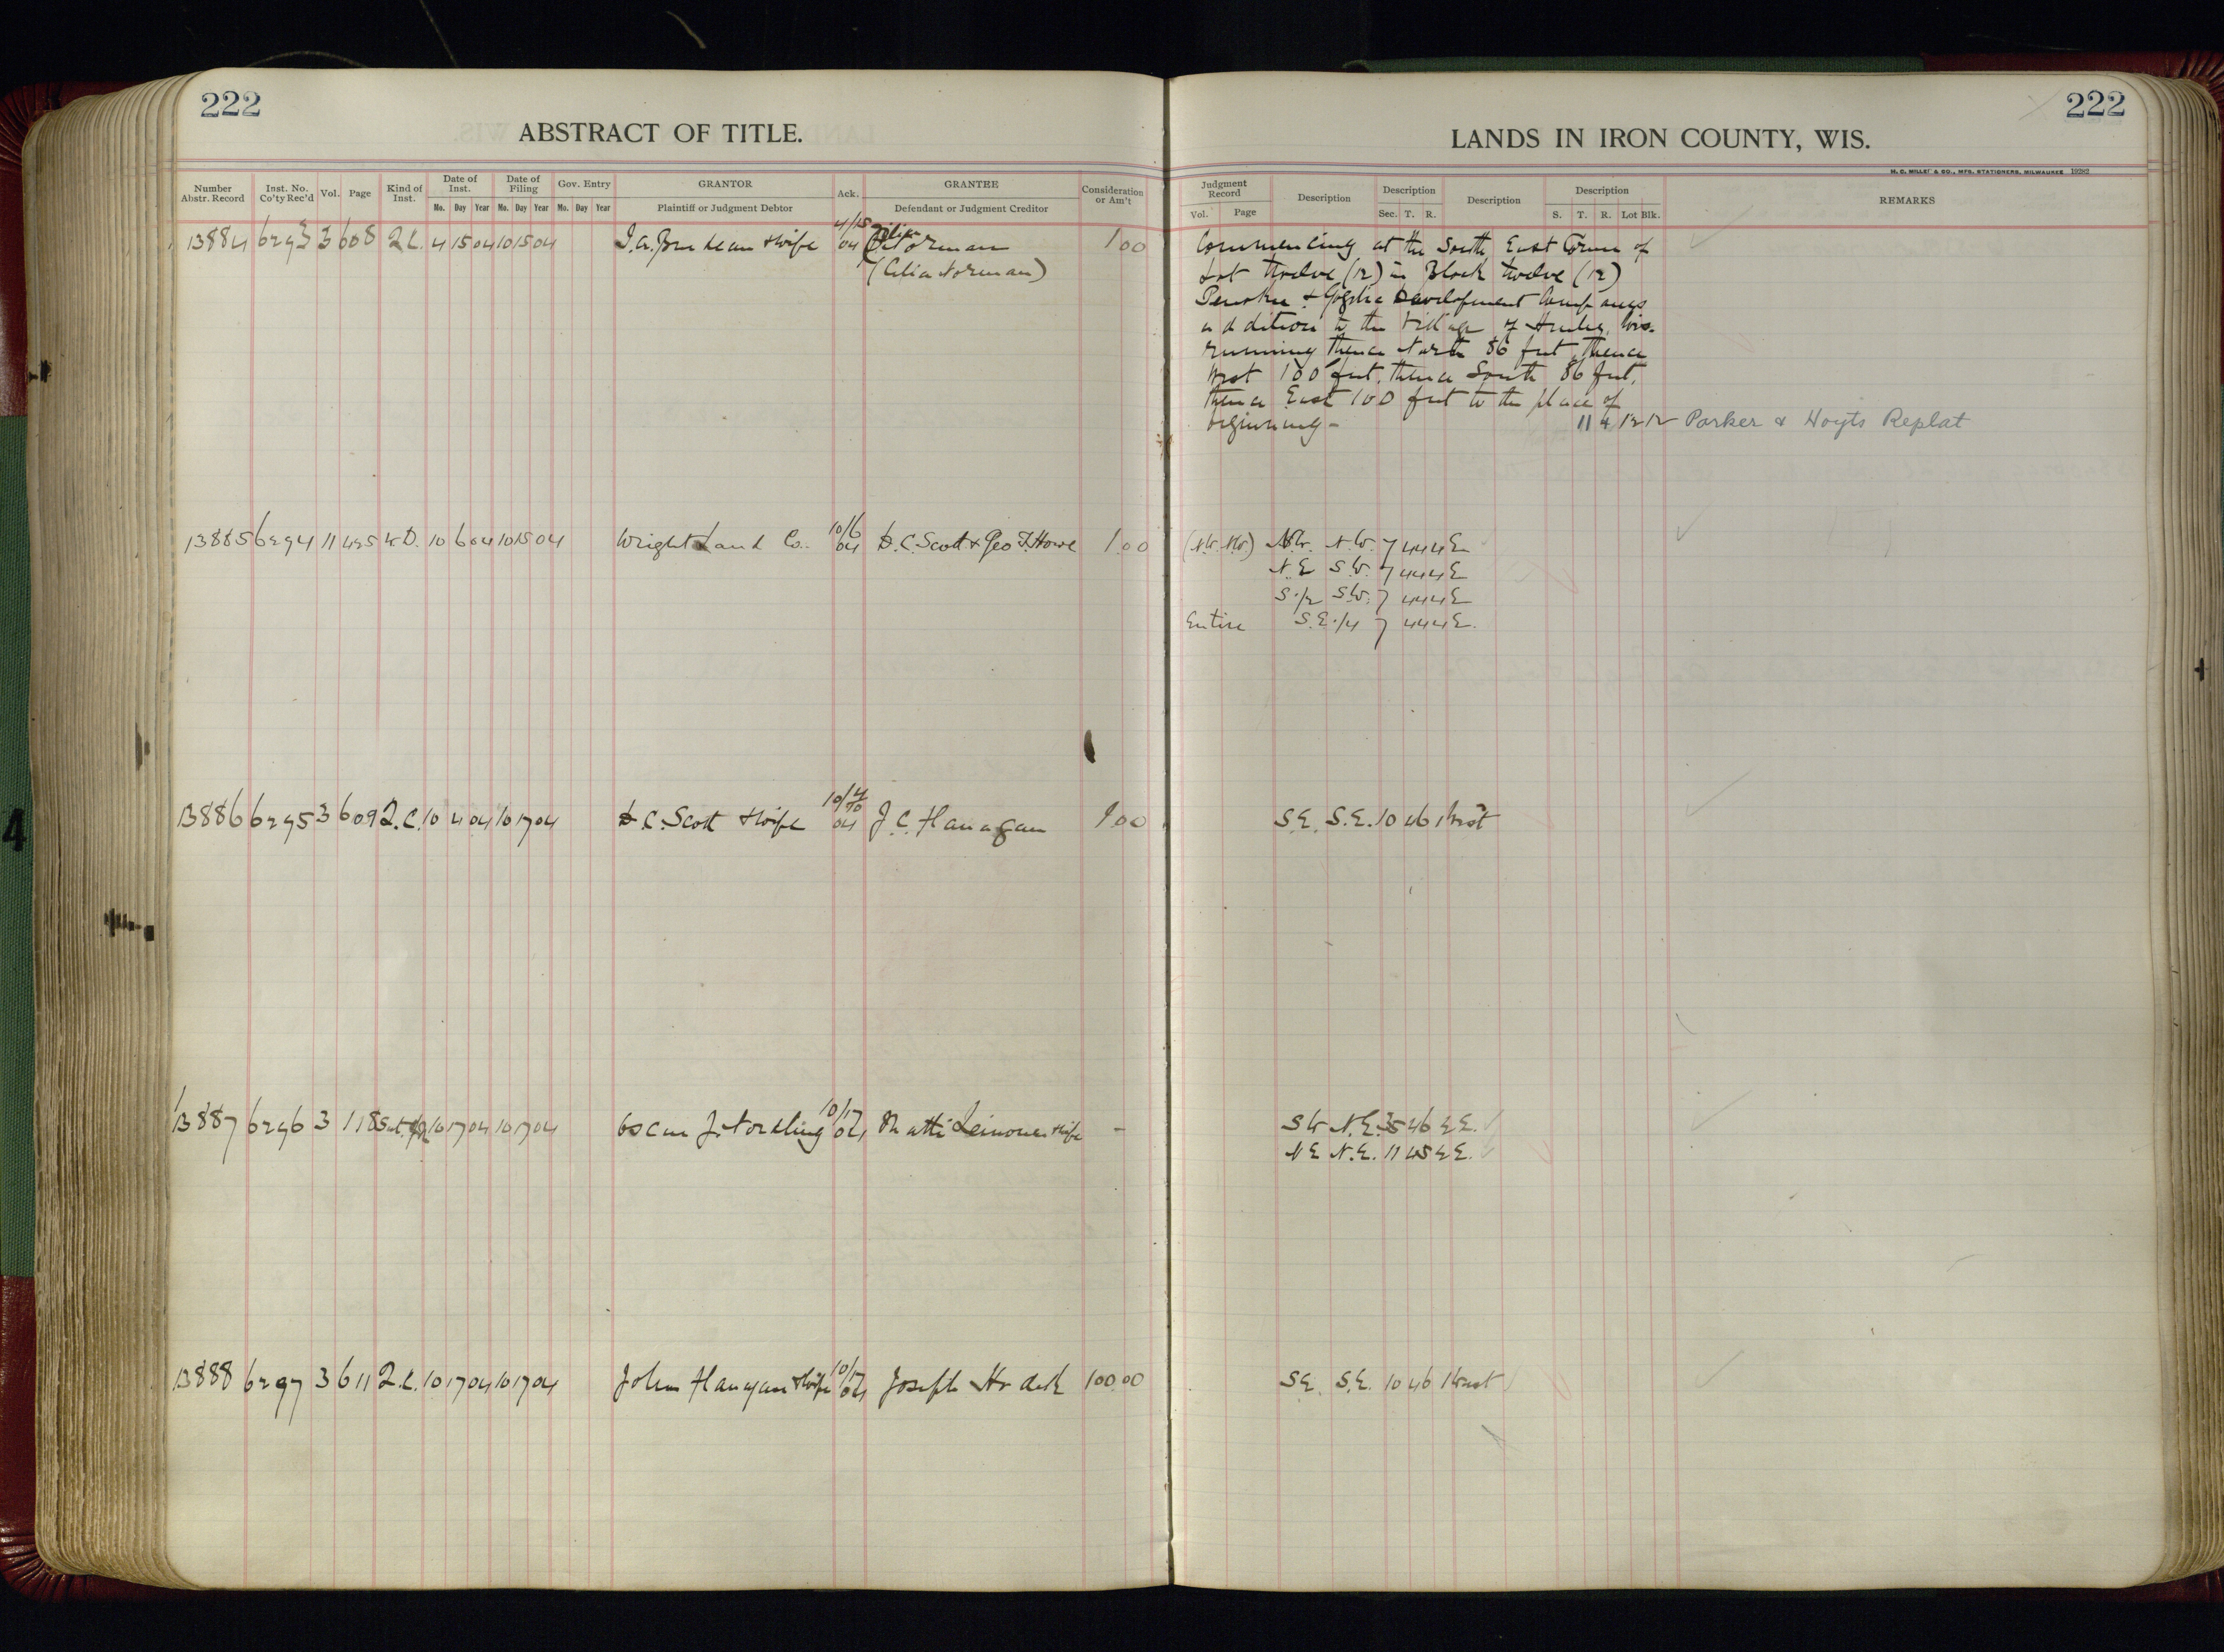 222
ABSTRACT OF TITLE.
Number Abstr. Record Inst. No. Co'ty Rec'd Vol. Page Kind of Inst. Date of Inst. Date of Filing Gov. Entry GRANTOR Ack. GRANTEE Consideration or Am't
Mo. Day Year Mo. Day Year Mo. Day Year Plaintiff or Judgment Debtor Defendant or Judgment Creditor
13884 6293 3 608 2.C. 4 15 04 10 15 04 & wife 4/15 04 Norman 1 00
(Celia Norman)
13885 6294 11 425 W.D. 10 6 04 10 15 04 Wright Land Co. 10/6 04 D.C. Scott & Geo F. Howe 1.00
13886 6295 3 609 2.C. 10 4 04 10 17 04 D.C. Scott & Wife 10/4 04 J.C. Flanagan 1.00
13887 6296 3 118 10 17 04 10 17 04 Oscar J. Nordling 10/17 04 Matti Leinonen & wife -
13888 6297 3 611 2.C. 10 17 04 10 17 04 John Flanagan & Wife 10/17 04 Joseph 100.00
222
LANDS IN IRON COUNTY, WIS.
H. C. MILLER CO., MFG. STATIONERS, MILWAUKEE 19282
Judgment Record Description Description Description Description REMARKS
Vol. Page Sec. T. R. S. T. R. Lot Blk.
Commencing at the South East Corner of
Lot twelve (12) in Block twelve (12)
Penokee & Gogebic Development Companys
addition to the Village of Hurley, Wis.
running thence North 86 feet, thence
West 100 feet, thence South 86 feet,
thence East 100 feet to the place of
beginning - 11 4 12 12 Parker & Hoyts Replat
(N.W. N.W.) N.W. N.W. 7 44 4 E
N.E S.W. 7 44 4 E
S.1/2 S.W. 7 44 4 E
Entire S.E.1/4 7 44 4 E.
S.E. S.E. 10 46 1 West
SW N.E. 35 46 2 E.
NE N.E. 11 45 2 E.
SE. S.E. 10 46 1 West